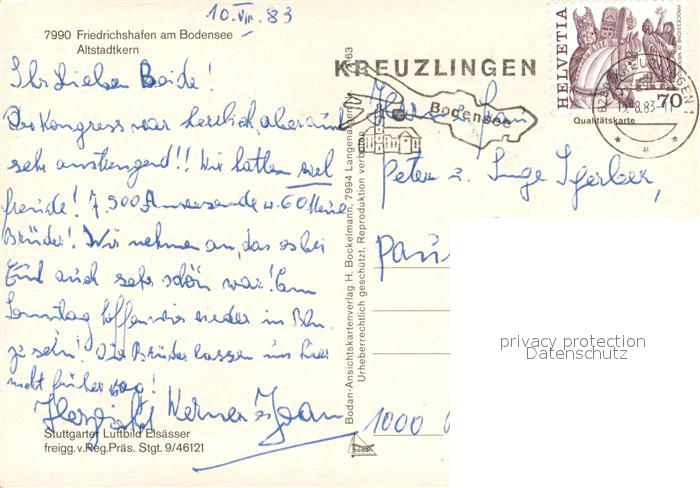 10. VIII. 83
7990 Friedrichshafen am Bodensee
Altstadtkern
Ihr Lieben Beide!
Der Kongress war herrlich, aber auch
sehr anstrengend!! Wir hatten viel
Freude! 7.500 Anwesende u. 60
Brüder! Wir nehmen an, das es bei
Euch auch sehr schön war! Am
Sonntag hoffen wir wieder in Bln.
zu sein! Die Brüder lassen uns hier
nicht früher weg!
Herzlichst Werner & Joan
Stuttgarter Luftbild Elsässer
freigg. v. Reg. Präs. Stgt. 9/46121
Bodan-Ansichtskartenverlag H. Bockelmann, 7994 Langenargen
Urheberrechtlich geschützt, Reproduktion verboten
63
bodan
KREUZLINGEN
Bodensee
HELVETIA
70
Qualitätskarte
KREUZLINGEN 1
8.83
Peter u. Inge
1000
privacy protection
Datenschutz